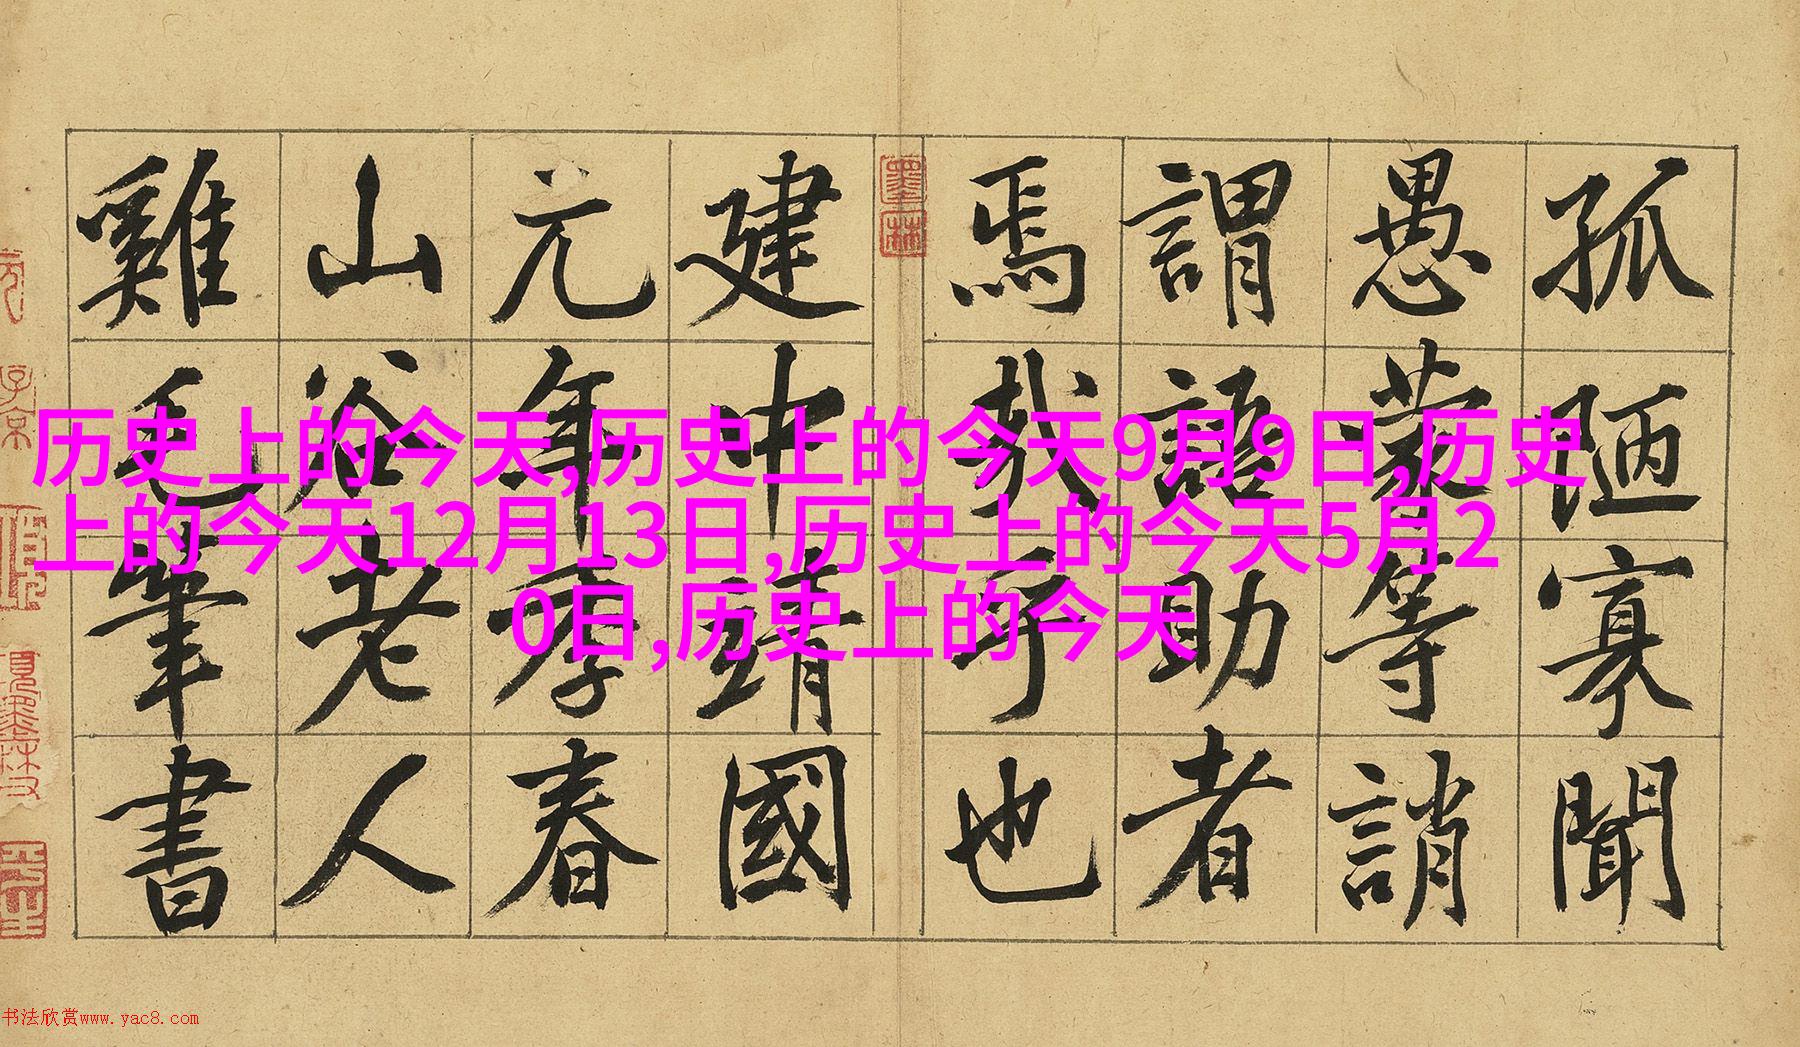 孤陋寡聞
愚蒙等誚
謂語助者
焉哉乎也
墨林
建中靖國
元年季春
山谷老人
雞毛筆書
历史上的今天,历史上的今天9月9日,历史
上的今天12月13日,历史上的今天5月2
0日,历史上的今天
书法欣赏www.yac8.com